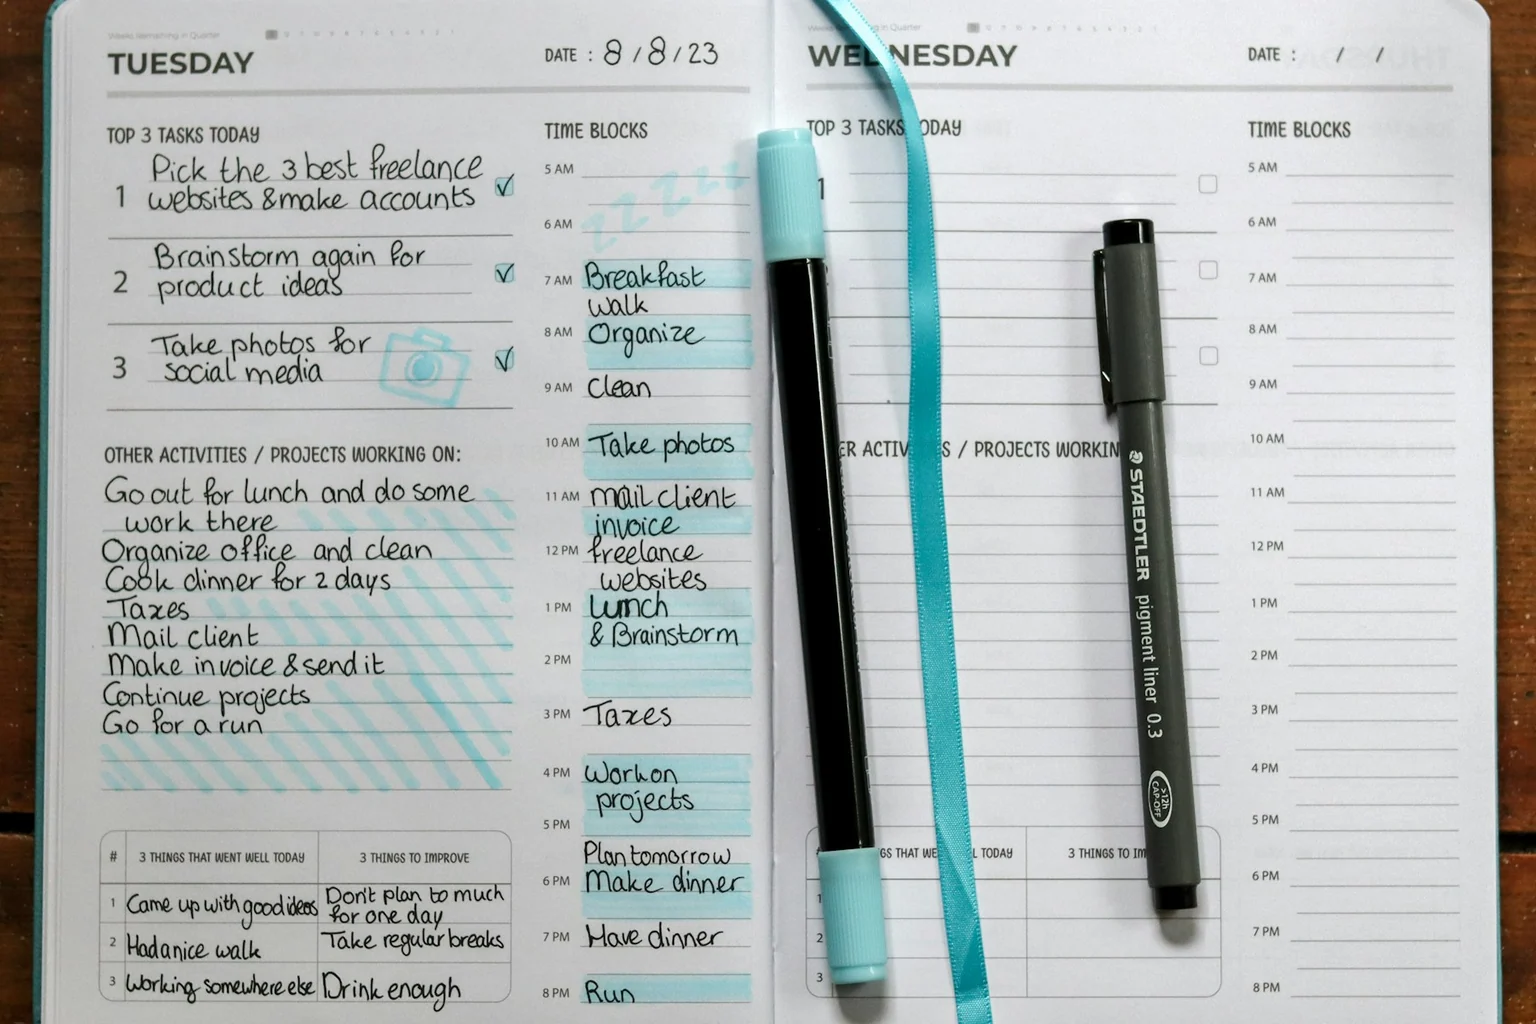 Weeks Remaining in Quarter
TUESDAY
DATE : 8/8/23
TOP 3 TASKS TODAY
1 Pick the 3 best freelance
websites & make accounts
2 Brainstorm again for
product ideas
3 Take photos for
social media
OTHER ACTIVITIES / PROJECTS WORKING ON:
Go out for lunch and do some
work there
Organize office and clean
Cook dinner for 2 days
Taxes
Mail client
Make invoice & send it
Continue projects
Go for a run
# 3 THINGS THAT WENT WELL TODAY 3 THINGS TO IMPROVE
1 Came up with good ideas Don't plan to much
for one day
2 Had a nice walk Take regular breaks
3 Working somewhere else Drink enough
TIME BLOCKS
5 AM zzzzzz
6 AM
7 AM Breakfast
walk
8 AM Organize
9 AM Clean
10 AM Take photos
11 AM mail client
invoice
12 PM freelance
websites
1 PM Lunch
& Brainstorm
2 PM
3 PM Taxes
4 PM Work on
projects
5 PM
Plan tomorrow
6 PM Make dinner
7 PM Have dinner
8 PM Run
WEDNESDAY
DATE : / /
TOP 3 TASKS TODAY
1
ER ACTIVITIES / PROJECTS WORKIN
GS THAT WELL TODAY 3 THINGS TO IM
1
2
3
TIME BLOCKS
5 AM
6 AM
7 AM
8 AM
9 AM
10 AM
11 AM
12 PM
1 PM
2 PM
3 PM
4 PM
5 PM
6 PM
7 PM
8 PM
STAEDTLER pigment liner 0.3
>12h
CAP-OFF